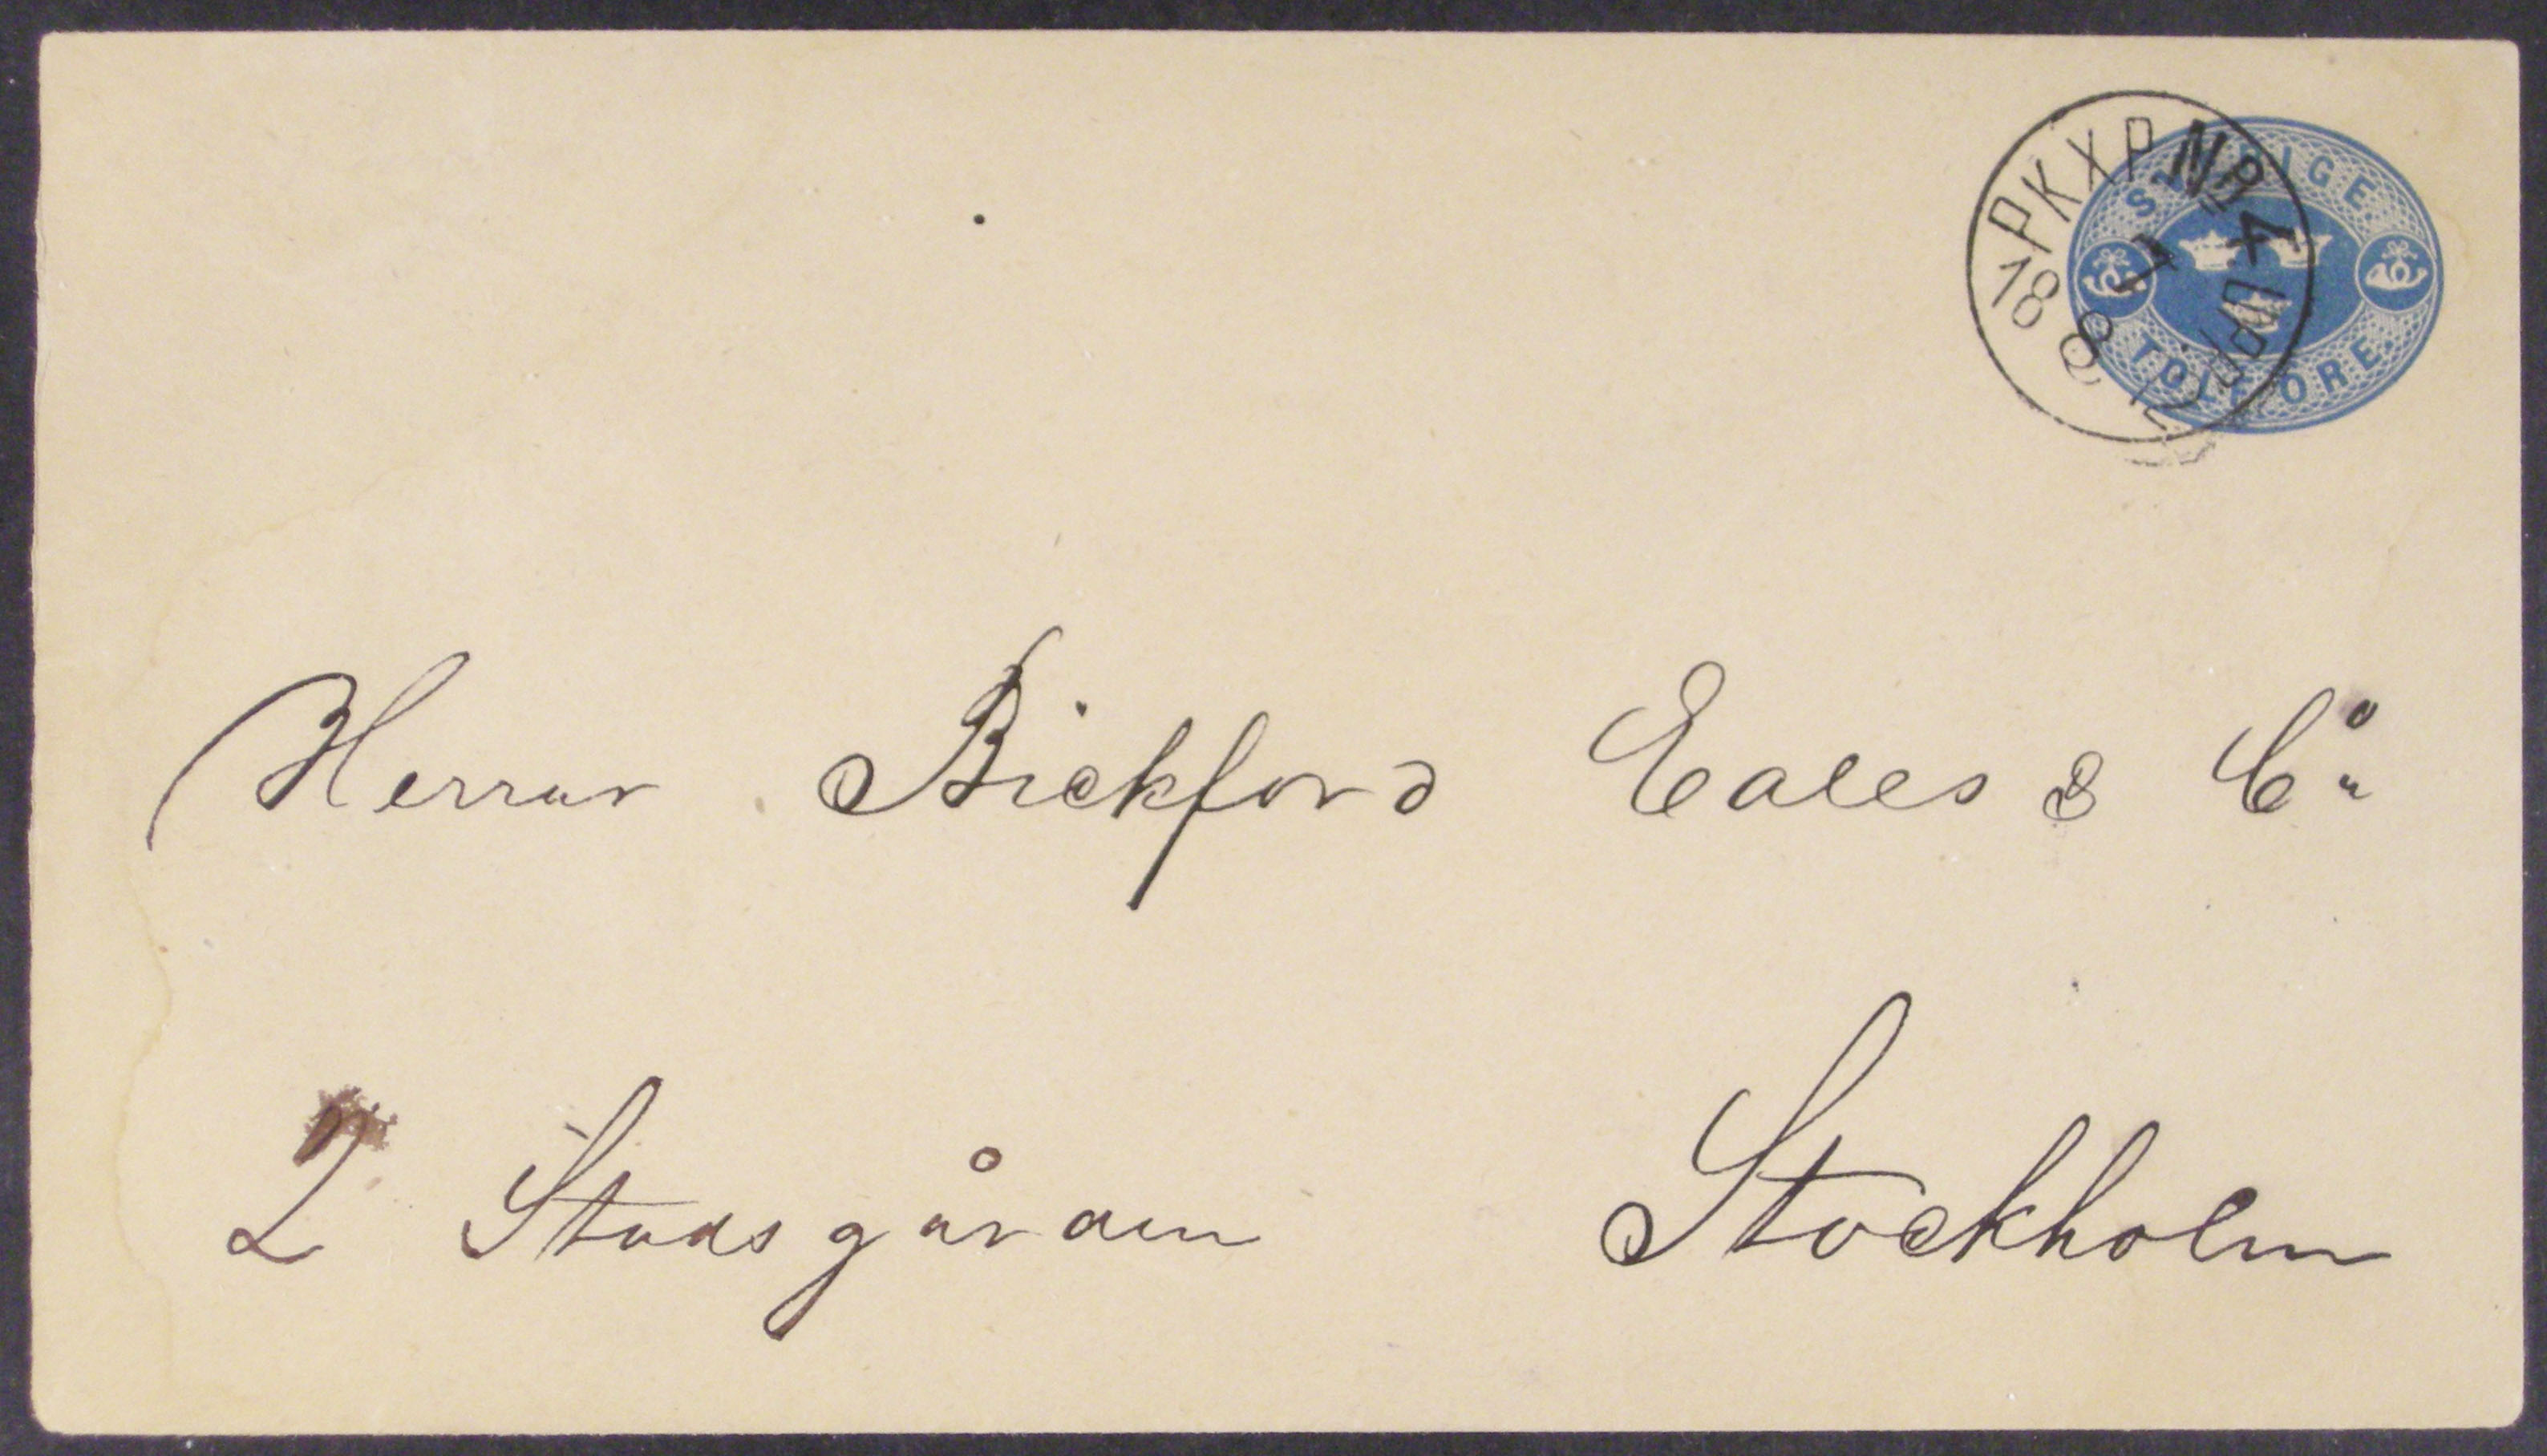 PKXP Nr 4 UPP
18 7
8
SVERIGE.
TOLF ÖRE.
Herrar Bickford Eales & Co
2 Stadsgården Stockholm